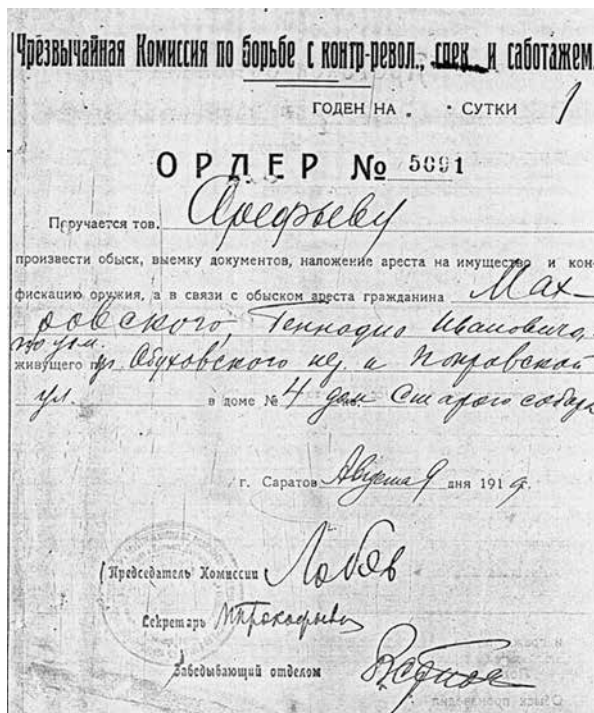 Чрезвычайная Комиссия по борьбе с контр-револ., спек. и саботажем.
ГОДЕН НА СУТКИ 1
ОРДЕР № 5091
Поручается тов. Арефьеву
произвести обыск, выемку документов, наложение ареста на имущество и кон-
фискацию оружия, а в связи с обыском ареста гражданина Мах-
ровского, Геннадия Ивановича,
по уг.
живущего Обуховского пер. и Покровской
ул. в доме № 4 дом Старого собора
г. Саратов Августа 9 дня 1919 г.
Председатель Комиссии Лобов
Секретарь МПрокофьев
Заведывающий отделом